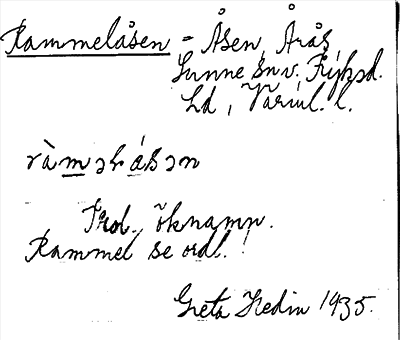 Rammelåsen = Åsen, Årås
Sunne sn v. Fryksd.
hd, Värml. l.
ràməlåsən
Trol. öknamn.
Rammel se ordl.!
Greta Hedin 1935.